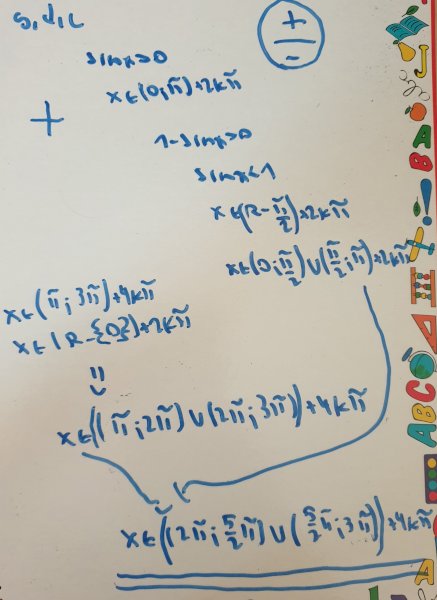 +
-
sinx>0
x∈(0;π)+2kπ
+
1-sinx>0
sinx<1
x∈(R-π/2)+2kπ
x∈(0;π/2)∪(π/2;π)+2kπ
x∈(π;3π)+4kπ
x∈(R-{0})+2kπ
x∈((π;2π)∪(2π;3π))+4kπ
x∈((2π;5/2π)∪(5/2π;3π))+4kπ
A
B
ABC
A